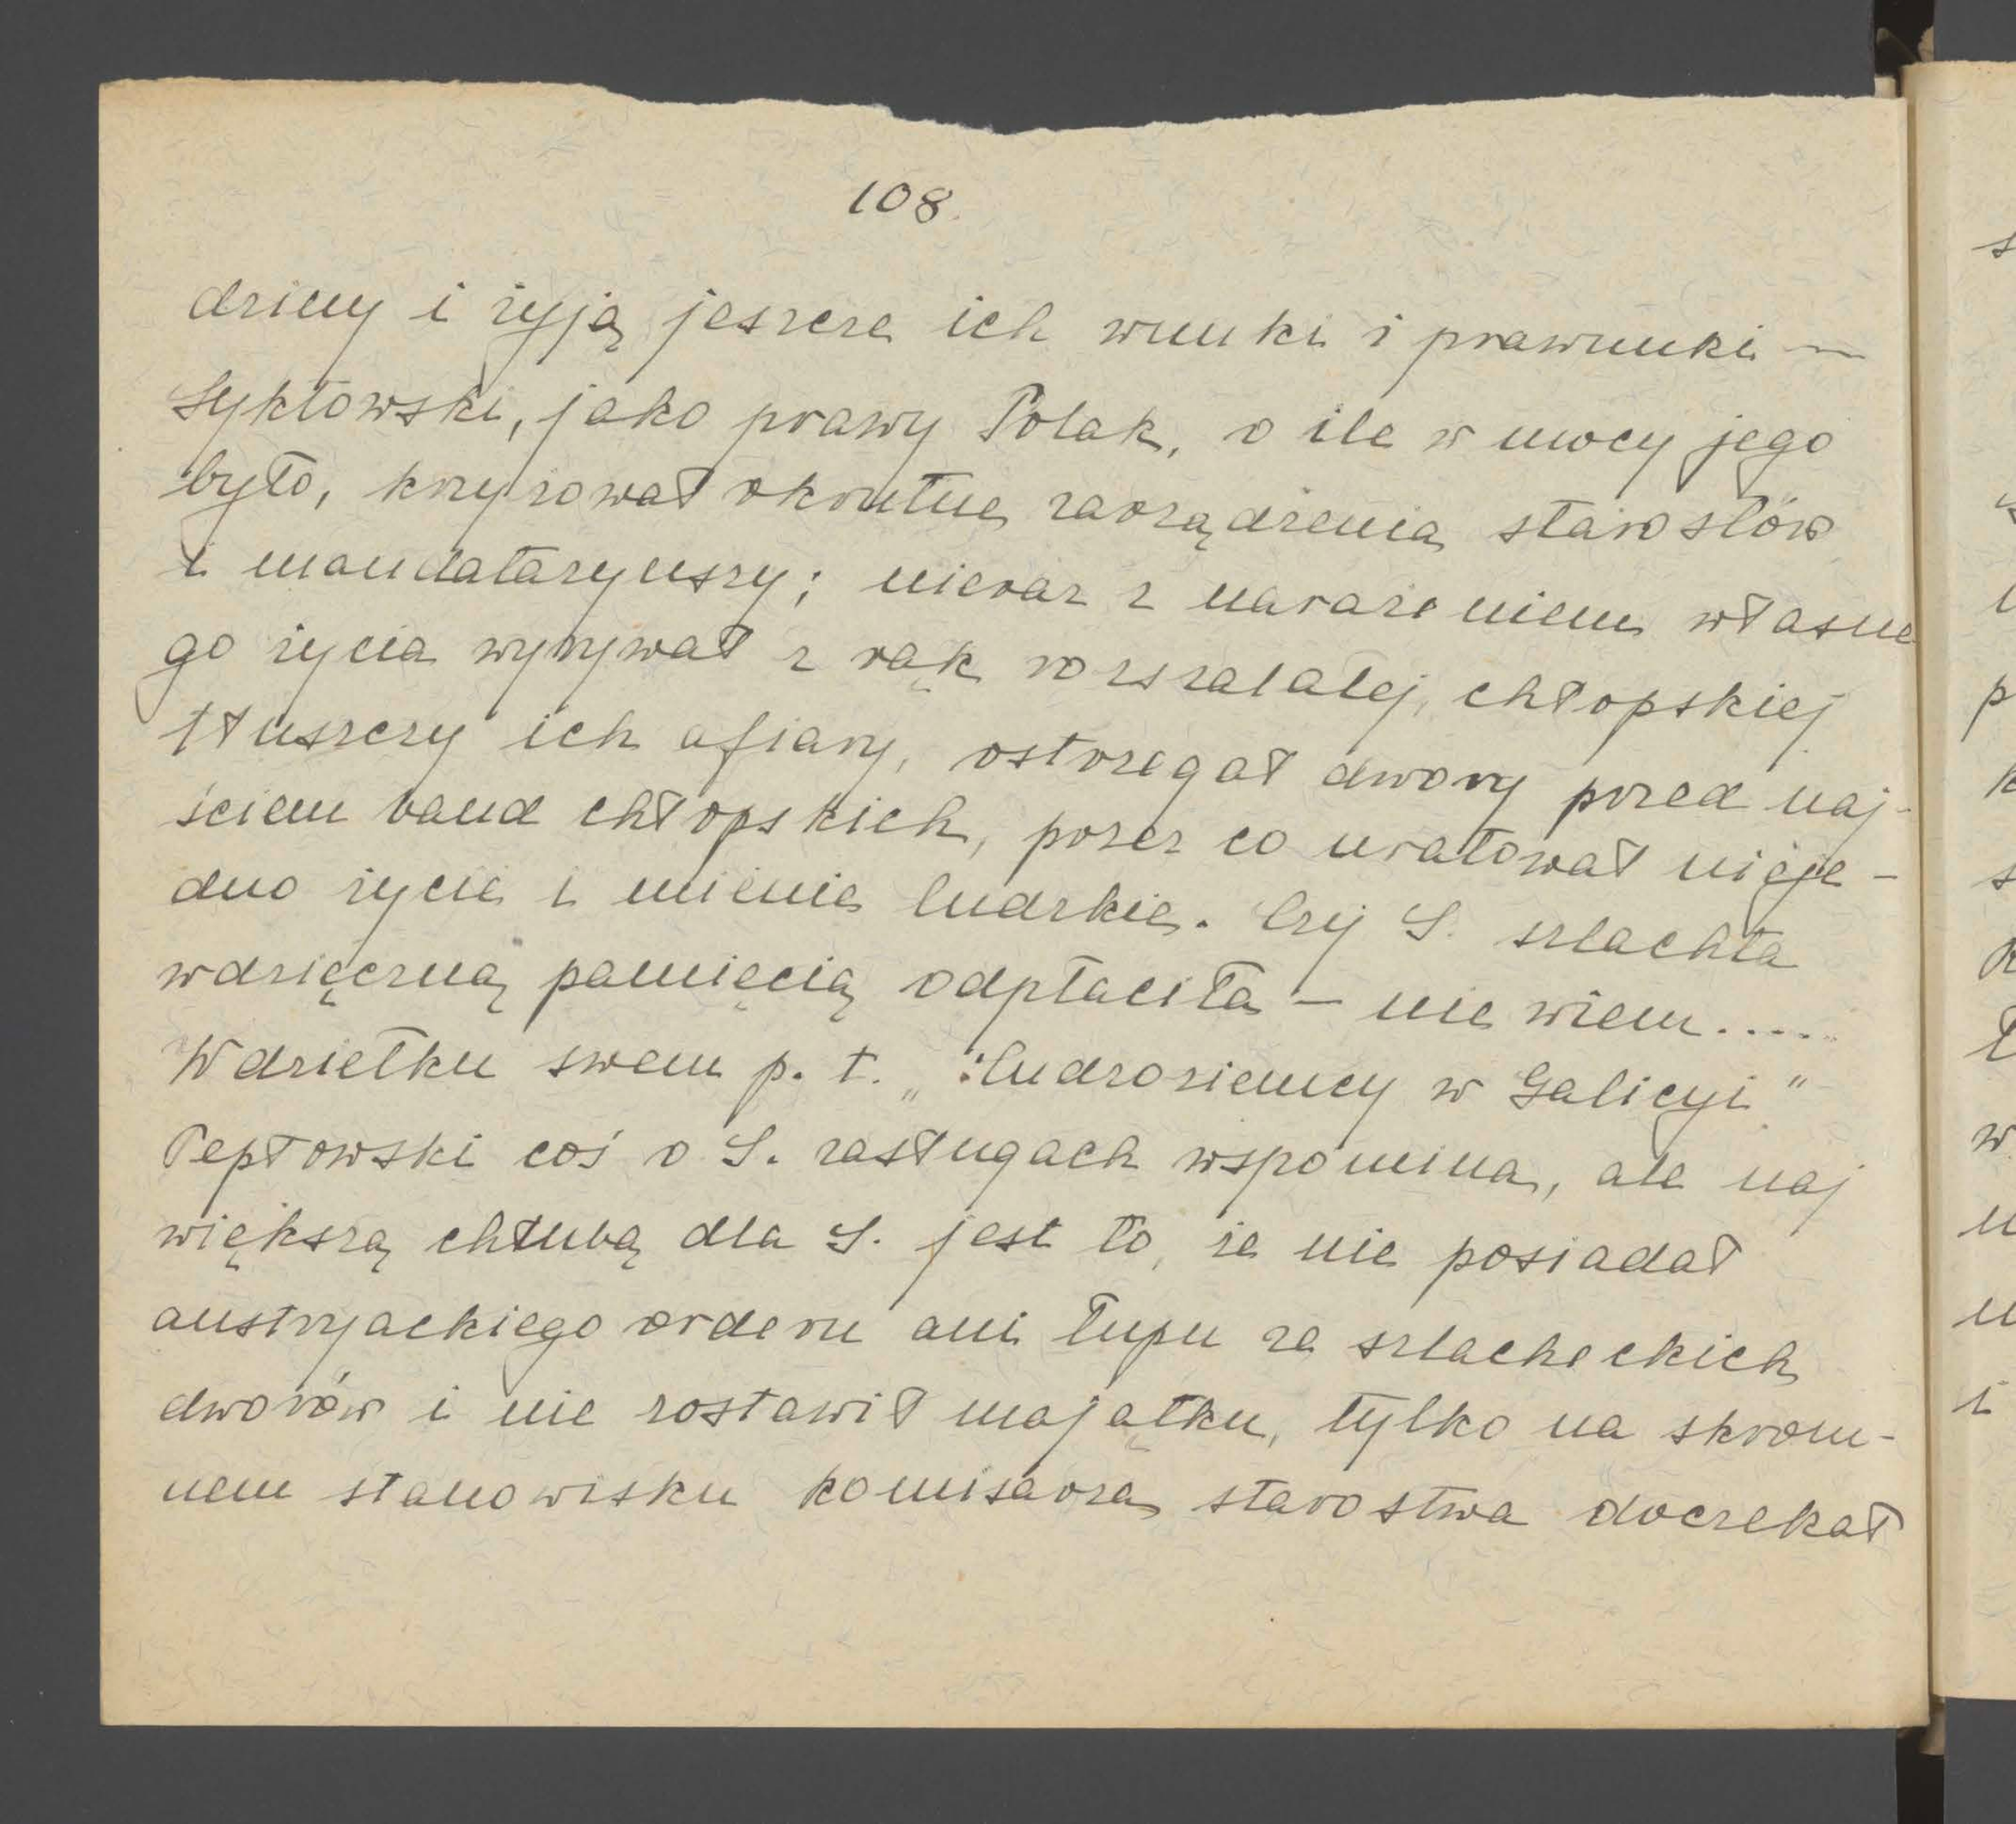 108.
dziny i żyją jeszcze ich wnuki i prawnuki —
Syktowski, jako prawy Polak, o ile w mocy jego
było, krzyżował okrutne zarządzenia starostów
i mandataryuszy; nieraz z narażeniem własne
go życia wyrywał z rąk rozszalałej, chłopskiej
tłuszczy ich ofiary, ostrzegał dwory przed naj-
ściem band chłopskich, przez co uratował nieje-
dno życie i mienie ludzkie. Czy S. szlachta
wdzięczną pamięcią odpłaciła — nie wiem.....
W dziełku swem p. t. „Cudzoziemcy w Galicyi"
Pepłowski coś o S. zasługach wspomina, ale naj
większą chlubą dla S. jest to, że nie posiadał
austryackiego orderu ani łupu ze szlacheckich
dworów i nie zostawił majątku, tylko na skrom-
nem stanowisku komisarza starostwa doczekał